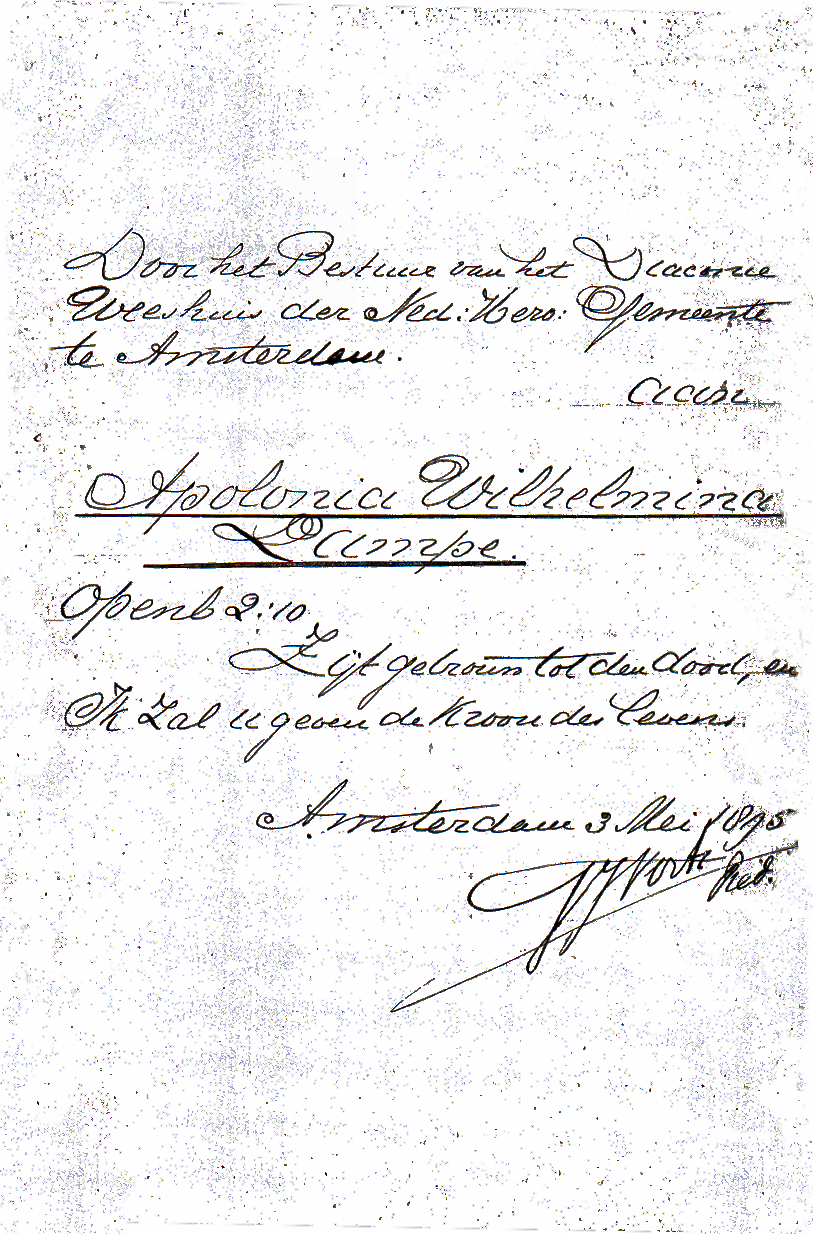 Door het Bestuur van het Diaconie
Weeshuis der Ned: Herv: Gemeente
te Amsterdam.
aan
Apolonia Wilhelmina
Lampe.
Openb 2:10
Zijt getrouw tot den dood, en
Ik zal u geven de Kroon des levens.
Amsterdam 3 Mei 1895
Pred.